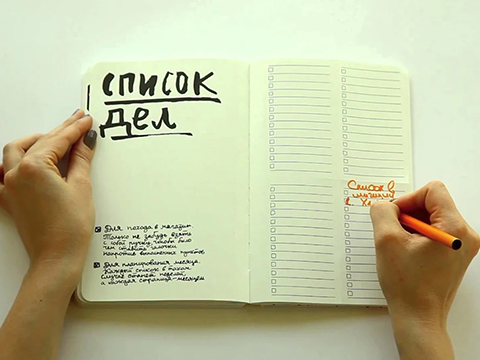 список
дел
Для похода в магазин.
Только не забудь взять
с собой ручку, чтоб было
чем ставить галочки
напротив выполненных пунктов.
Для планирования месяца.
Каждый список в таком
случае станет неделей,
и каждая страница – месяцем
Список
в